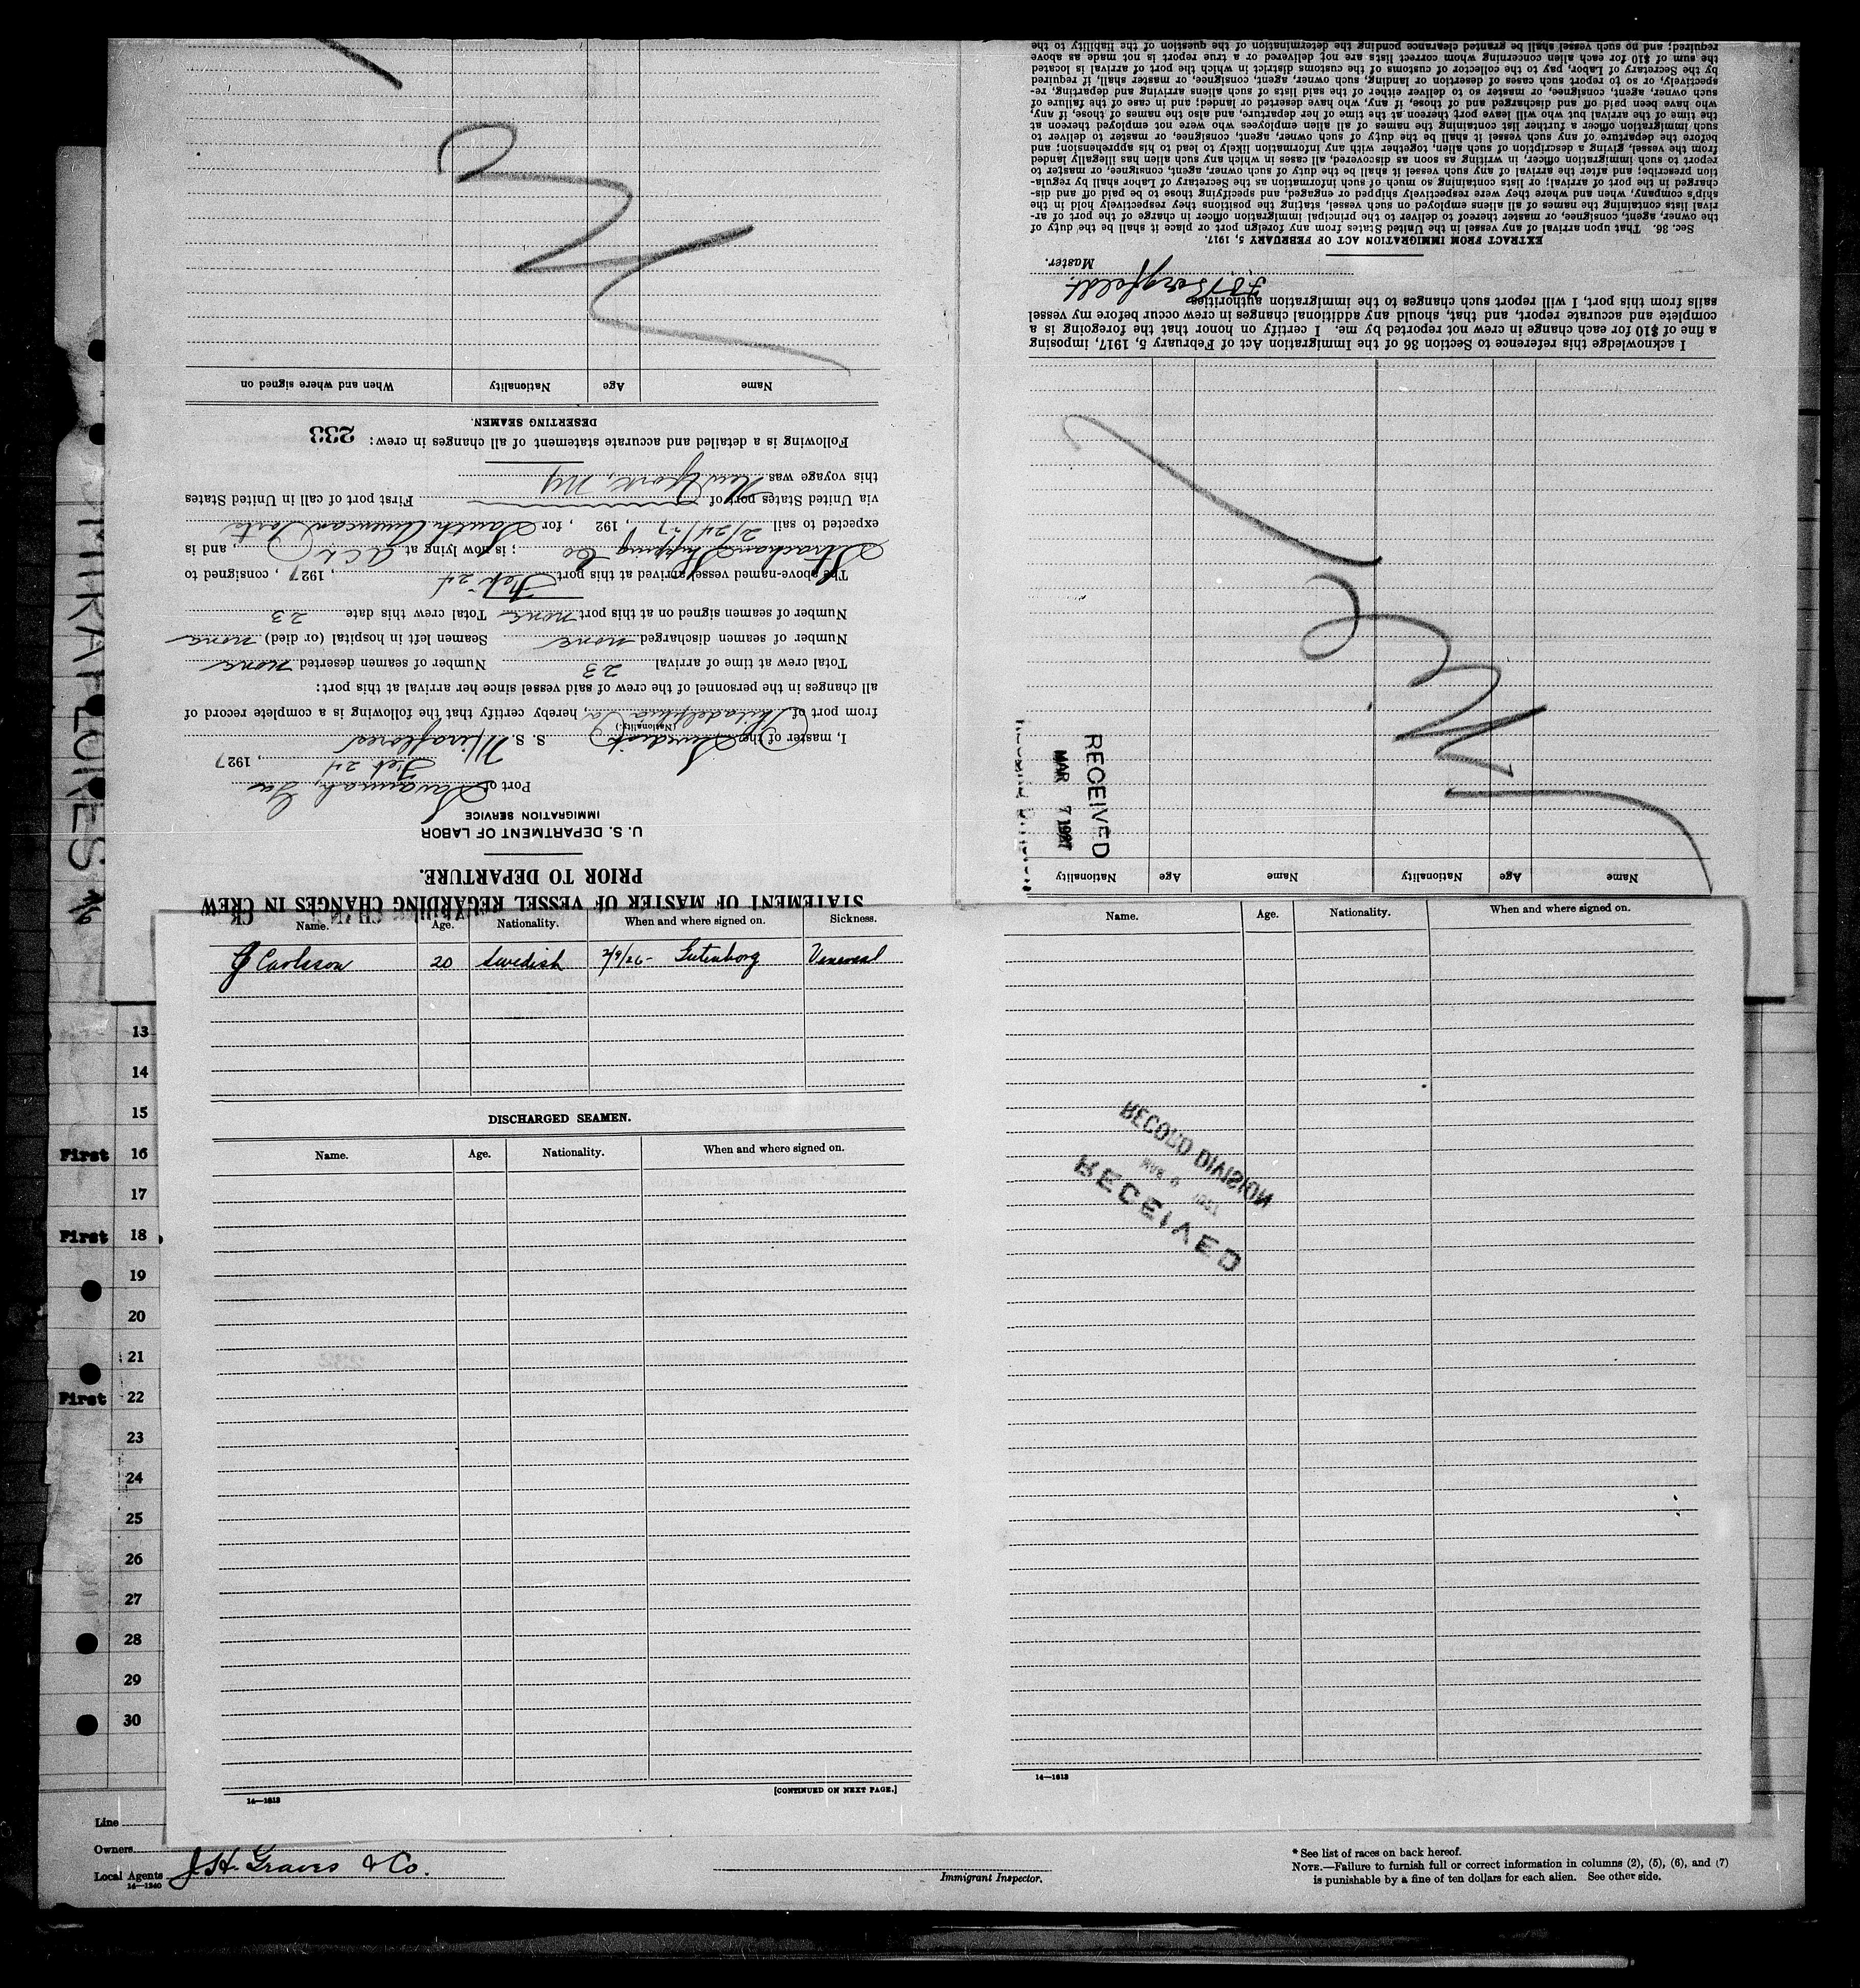 STATEMENT OF MASTER OF VESSEL REGARDING CHANGES IN CREW
PRIOR TO DEPARTURE.
U. S. DEPARTMENT OF LABOR
IMMIGRATION SERVICE
Port of Savannah, Ga
Feb 24, 1927
I, master of the Swedish S. S. Miraflores
(Nationality.)
from port of Philadelphia Pa, hereby certify that the following is a complete record of
all changes in the personnel of the crew of said vessel since her arrival at this port:
Total crew at time of arrival 23 Number of seamen deserted none
Number of seamen discharged none Seamen left in hospital (or died) none
Number of seamen signed on at this port none Total crew this date 23
The above-named vessel arrived at this port Feb 24, 1927, consigned to
Strachan Shipping Co; is now lying at ACL, and is
expected to sail 2/24/27, 192 , for South American Ports
via United States port of First port of call in United States
this voyage was New York, NY
Following is a detailed and accurate statement of all changes in crew: 233
DESERTING SEAMEN.
Name Age Nationality When and where signed on
Name Age Nationality Name Age Nationality
RECEIVED
MAR 7 1927
I acknowledge this reference to Section 36 of the Immigration Act of February 5, 1917, imposing
a fine of $10 for each change in crew not reported by me. I certify on honor that the foregoing is a
complete and accurate report, and that, should any additional changes in crew occur before my vessel
sails from this port, I will report such changes to the immigration authorities.
Master.
EXTRACT FROM IMMIGRATION ACT OF FEBRUARY 5, 1917.
Sec. 36. That upon arrival of any vessel in the United States from any foreign port or place it shall be the duty of
the owner, agent, consignee, or master thereof to deliver to the principal immigration officer in charge of the port of ar-
rival lists containing the names of all aliens employed on such vessel, stating the positions they respectively hold in the
ship's company, when and where they were respectively shipped or engaged, and specifying those to be paid off and dis-
charged in the port of arrival; or lists containing so much of such information as the Secretary of Labor shall by regula-
tion prescribe; and after the arrival of any such vessel it shall be the duty of such owner, agent, consignee, or master to
report to such immigration officer, in writing as soon as discovered, all cases in which any such alien has illegally landed
from the vessel, giving a description of such alien, together with any information likely to lead to his apprehension; and
before the departure of any such vessel it shall be the duty of such owner, agent, consignee, or master to deliver to
such immigration officer a further list containing the names of all alien employees who were not employed thereon at
the time of the arrival but who will leave port thereon at the time of her departure, and also the names of those, if any,
who have been paid off and discharged and of those, if any, who have deserted or landed; and in case of the failure of
such owner, agent, consignee, or master so to deliver either of the said lists of such aliens arriving and departing, re-
spectively, or so to report such cases of desertion or landing, such owner, agent, consignee, or master shall, if required
by the Secretary of Labor, pay to the collector of customs of the customs district in which the port of arrival is located
the sum of $10 for each alien concerning whom correct lists are not delivered or a true report is not made as above
required; and no such vessel shall be granted clearance pending the determination of the question of the liability to the
MIRAFLORES
Name. Age. Nationality. When and where signed on. Sickness.
J Carlsson 20 Swedish 2/9/26- Gutenborg Venereal
DISCHARGED SEAMEN.
Name. Age. Nationality. When and where signed on.
[CONTINUED ON NEXT PAGE.]
14—1613
Name. Age. Nationality. When and where signed on.
RECORD DIVISION
RECEIVED
14—1613
13
14
15
First 16
17
First 18
19
20
21
First 22
23
24
25
26
27
28
29
30
Line
Owners
Local Agents J. H. Graves & Co.
14—1240
Immigrant Inspector.
* See list of races on back hereof.
NOTE.—Failure to furnish full or correct information in columns (2), (5), (6), and (7)
is punishable by a fine of ten dollars for each alien. See other side.